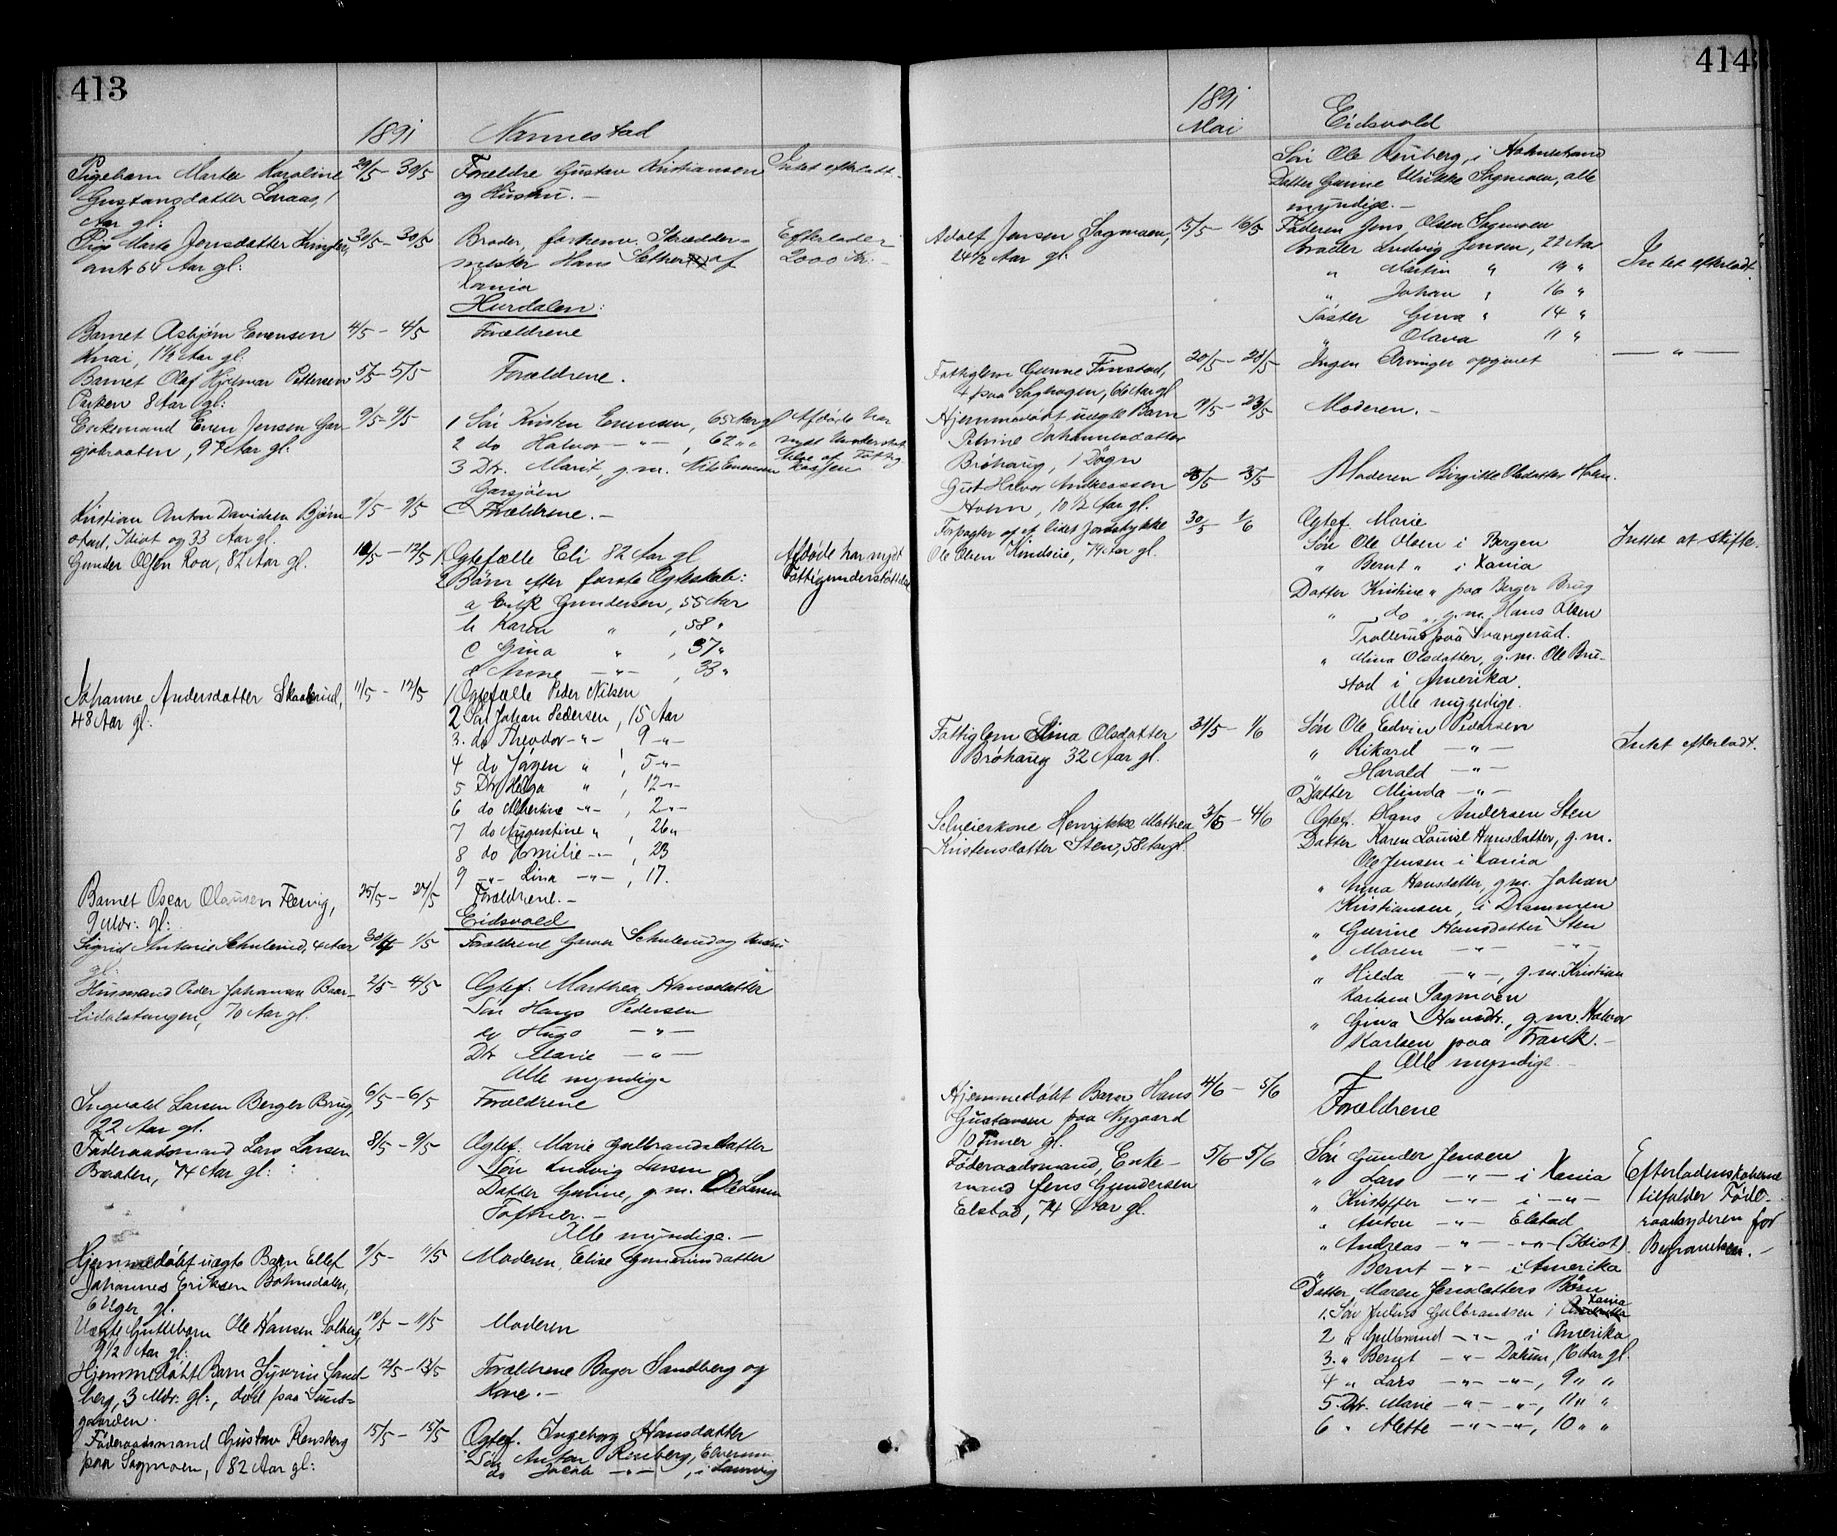 413
1891 Nannestad
Pigebarn Marte Karoline 29/5 - 30/5 Forældre Gustav Kristiansen Intet efterladt.
Gustavsdatter Loraas, 1 og Hustru. -
Aar gl:
Pige Marte Jensdatter 30/5 - 30/5 Broder, forhenv. Skrædder- Efterlader
64 Aar gl: mester Hans Sæther af 2000 Kr. -
Xania
Hurdalen:
Barnet Asbjørn Evensen 4/5 - 4/5 Forældrene
Knai, 1½ Aar gl:
Barnet Olaf Hjelmar Pettersen 5/5 - 5/5 Forældrene.
Parken 8 Aar gl:
Enkemand Even Jensen Gar- 9/5 - 9/5 1 Søn Kristen Evensen, 65 Aar gl Afdøde har
sjøbraaten, 92 Aar gl. 2 do Halvor -"-, 62 " " nydt Understøt-
3 Dtr. Marit, g.m. Nils Evensen telse af Fattig
Garsjøen kassen
Kristian Anton Davidsen Bjørn- 9/5 - 9/5 Forældrene. -
stad, Idiot og 33 Aar gl.
Gunder Olsen Roa, 82 Aar gl. 12/5 1. Ogtefælle Eli 82 Aar gl Afdøde har nydt
2 Børn efter første Ogteskab: Fattigunderstøttelse
a Erik Gundersen, 55 Aar
b Karen " , 58 "
c Gina " , 37 "
d Anne -"- , 33 "
Johanne Andersdatter Skaabrud, 11/5 - 12/5 1 Ogtefælle Peder Nilsen
48 Aar gl: 2 Søn Johan Pedersen, 15 Aar
3. do Theodor -"- 9 -"-
4 do Jørgen " , 5 -"-
5 Dtr. Helga " , 12 -"-
6 do Albertine -"- , 2 -"-
7 do Augustine " , 26 "
8 do Emilie -"- , 23
9 -"- Lina -"- , 17.
Barnet Oscar Olausen 25/5 - 27/5 Forældrene. -
9 Mdr: gl:
Eidsvold
Sigrid Antonie Schulerud, 4 Aar 1/5 Forældrene Schulerud og
gl:
Husmand Peder Johansen Baar- 2/5 - 4/5 Ogtef: Marthea Hansdatter
lidalstangen, 70 Aar gl. Søn Hans Pedersen
do Hugo -"-
Dtr Marie -"-
Alle myndige
Ingvald Larsen Berger Brug, 6/5 - 6/5 Forældrene
22 Aar gl.
Føderaadsmand Lars Larsen 8/5 - 9/5 Ogtef. Marie Gulbrandsdatter
Braaten, 74 Aar gl: Søn Ludvig Larsen
Datter Gurine, g.m. Ole Larsen
Toftner. -
Alle myndige. -
Hjemmedøbt uægte Barn Ellef 9/5 - 11/5 Moderen, Elise Guneriusdatter
Johannes Eriksen
6 Uger gl.
Uægte Guttebarn Ole Hansen Solberg, 10/5 - 11/5 Moderen
9½ Aar gl:
Hjemmedøbt Barn Syverin Sand- 12/5 - 13/5 Forældrene Bager Sandberg og
berg, 3 Mdr. gl:, død paa Sund- Kone. -
gaarden.
Føderaadsmand Gustav Rensberg 15/5 - 15/5 Ogtef. Ingeborg Hansdatter
paa Sagmoen, 82 Aar gl: Søn Anton Renberg, Elverum
do Jacob -"- , i Laurvig
414
1891
Mai Eidsvold
Søn Ole Renberg, i Holmestrand
Datter Gurine Ulrikke Sagmoen, alle
myndige. -
Adolf Jensen Sagmoen, 15/5 - 16/5 Faderen Jens Olsen Sagmoen
24½ Aar gl. Broder Ludvig Jensen, 22 Aar Intet efterladt.
" Martin " 19 "
" Johan " 16 "
Søster Gina " 14 "
" Olava 11 "
Fattiglem Gunne Finstad, 20/5 - 23/5 Ingen Arvinger opgivet - " -
paa Saghagen, 66 Aar gl
Hjemmedøbt uægte Barn 9/5 - 23/5 Moderen. -
Petrine Johannesdatter
Brøhaug, 1 Døgn
Gut Halvor Andreassen 25/5 Moderen Birgitte Olsdatter Holm.
Holm, 10½ Aar gl.
Forpagter af et lidet Jordstykke 30/5 1/6 Ogtef. Marie
Ole Olsen 74 Aar gl. Søn Ole Olsen i Bergen Intet at skifte.
" Bernt " i Xania
Datter Kristine " paa Berger Brug
" do " g.m. Hans Olsen
Trollerud paa Svangerud.
" Mina Olsdatter, g.m. Ole Bru-
stad i Amerika.
Alle myndige.
Fattiglem Olsdatter 31/5 - 1/6 Søn Ole Edvin Pedersen
Brøhaug 32 Aar gl. " Rikard -"- Intet efterladt.
" Harald -"-
Datter Minda -"-
Selveierkone Henrikke Mathea 3/6 - 4/6 Ogtef. Hans Andersen Sten
Kristensdatter Sten, 58 Aar gl. Datter Karen Louise Hansdatter, g.m.
Ole Jensen i Xania
" Anna Hansdatter, g.m. Johan
Kristiansen, i Drammen
" Gurine Hansdatter Sten
" Maren -"- -"-
" Hilda -"-, g.m. Kristian
Karlsen Sagmoen
" Gina Hansdtr., g.m. Halvor
Karlsen paa Frank. -
Alle myndige -
Hjemmedøbt Barn Hans 4/6 - 5/6 Forældrene
Gustavsen paa Nygaard
10 Timer gl.
Føderaadsmand, Enke- 5/6 - 5/6 Søn Gunder Jensen
mand Jens Gundersen " Lars -"- i Xania Efterladenskaberne
Elstad, 74 Aar gl. " Kristoffer -"- i -"- tilfalder Føde-
" Anton -"- Elstad raadsyderen for
" Andreas -"- -"- (Idiot) Begravelsen. -
" Bernt -"- i Amerika
Datter Maren Jensdatters Børn
1. Søn Julius Gulbrandsen i Xania
2 " Gulbrand -"- i Amerika
3. " Bernt -"- Dahlm, 16 Aar gl.
4 " Lars -"- -"-, 9 " "
5 Dtr. Marie -"- -"-, 11 " "
6 " Alette -"- -"-, 10 " "